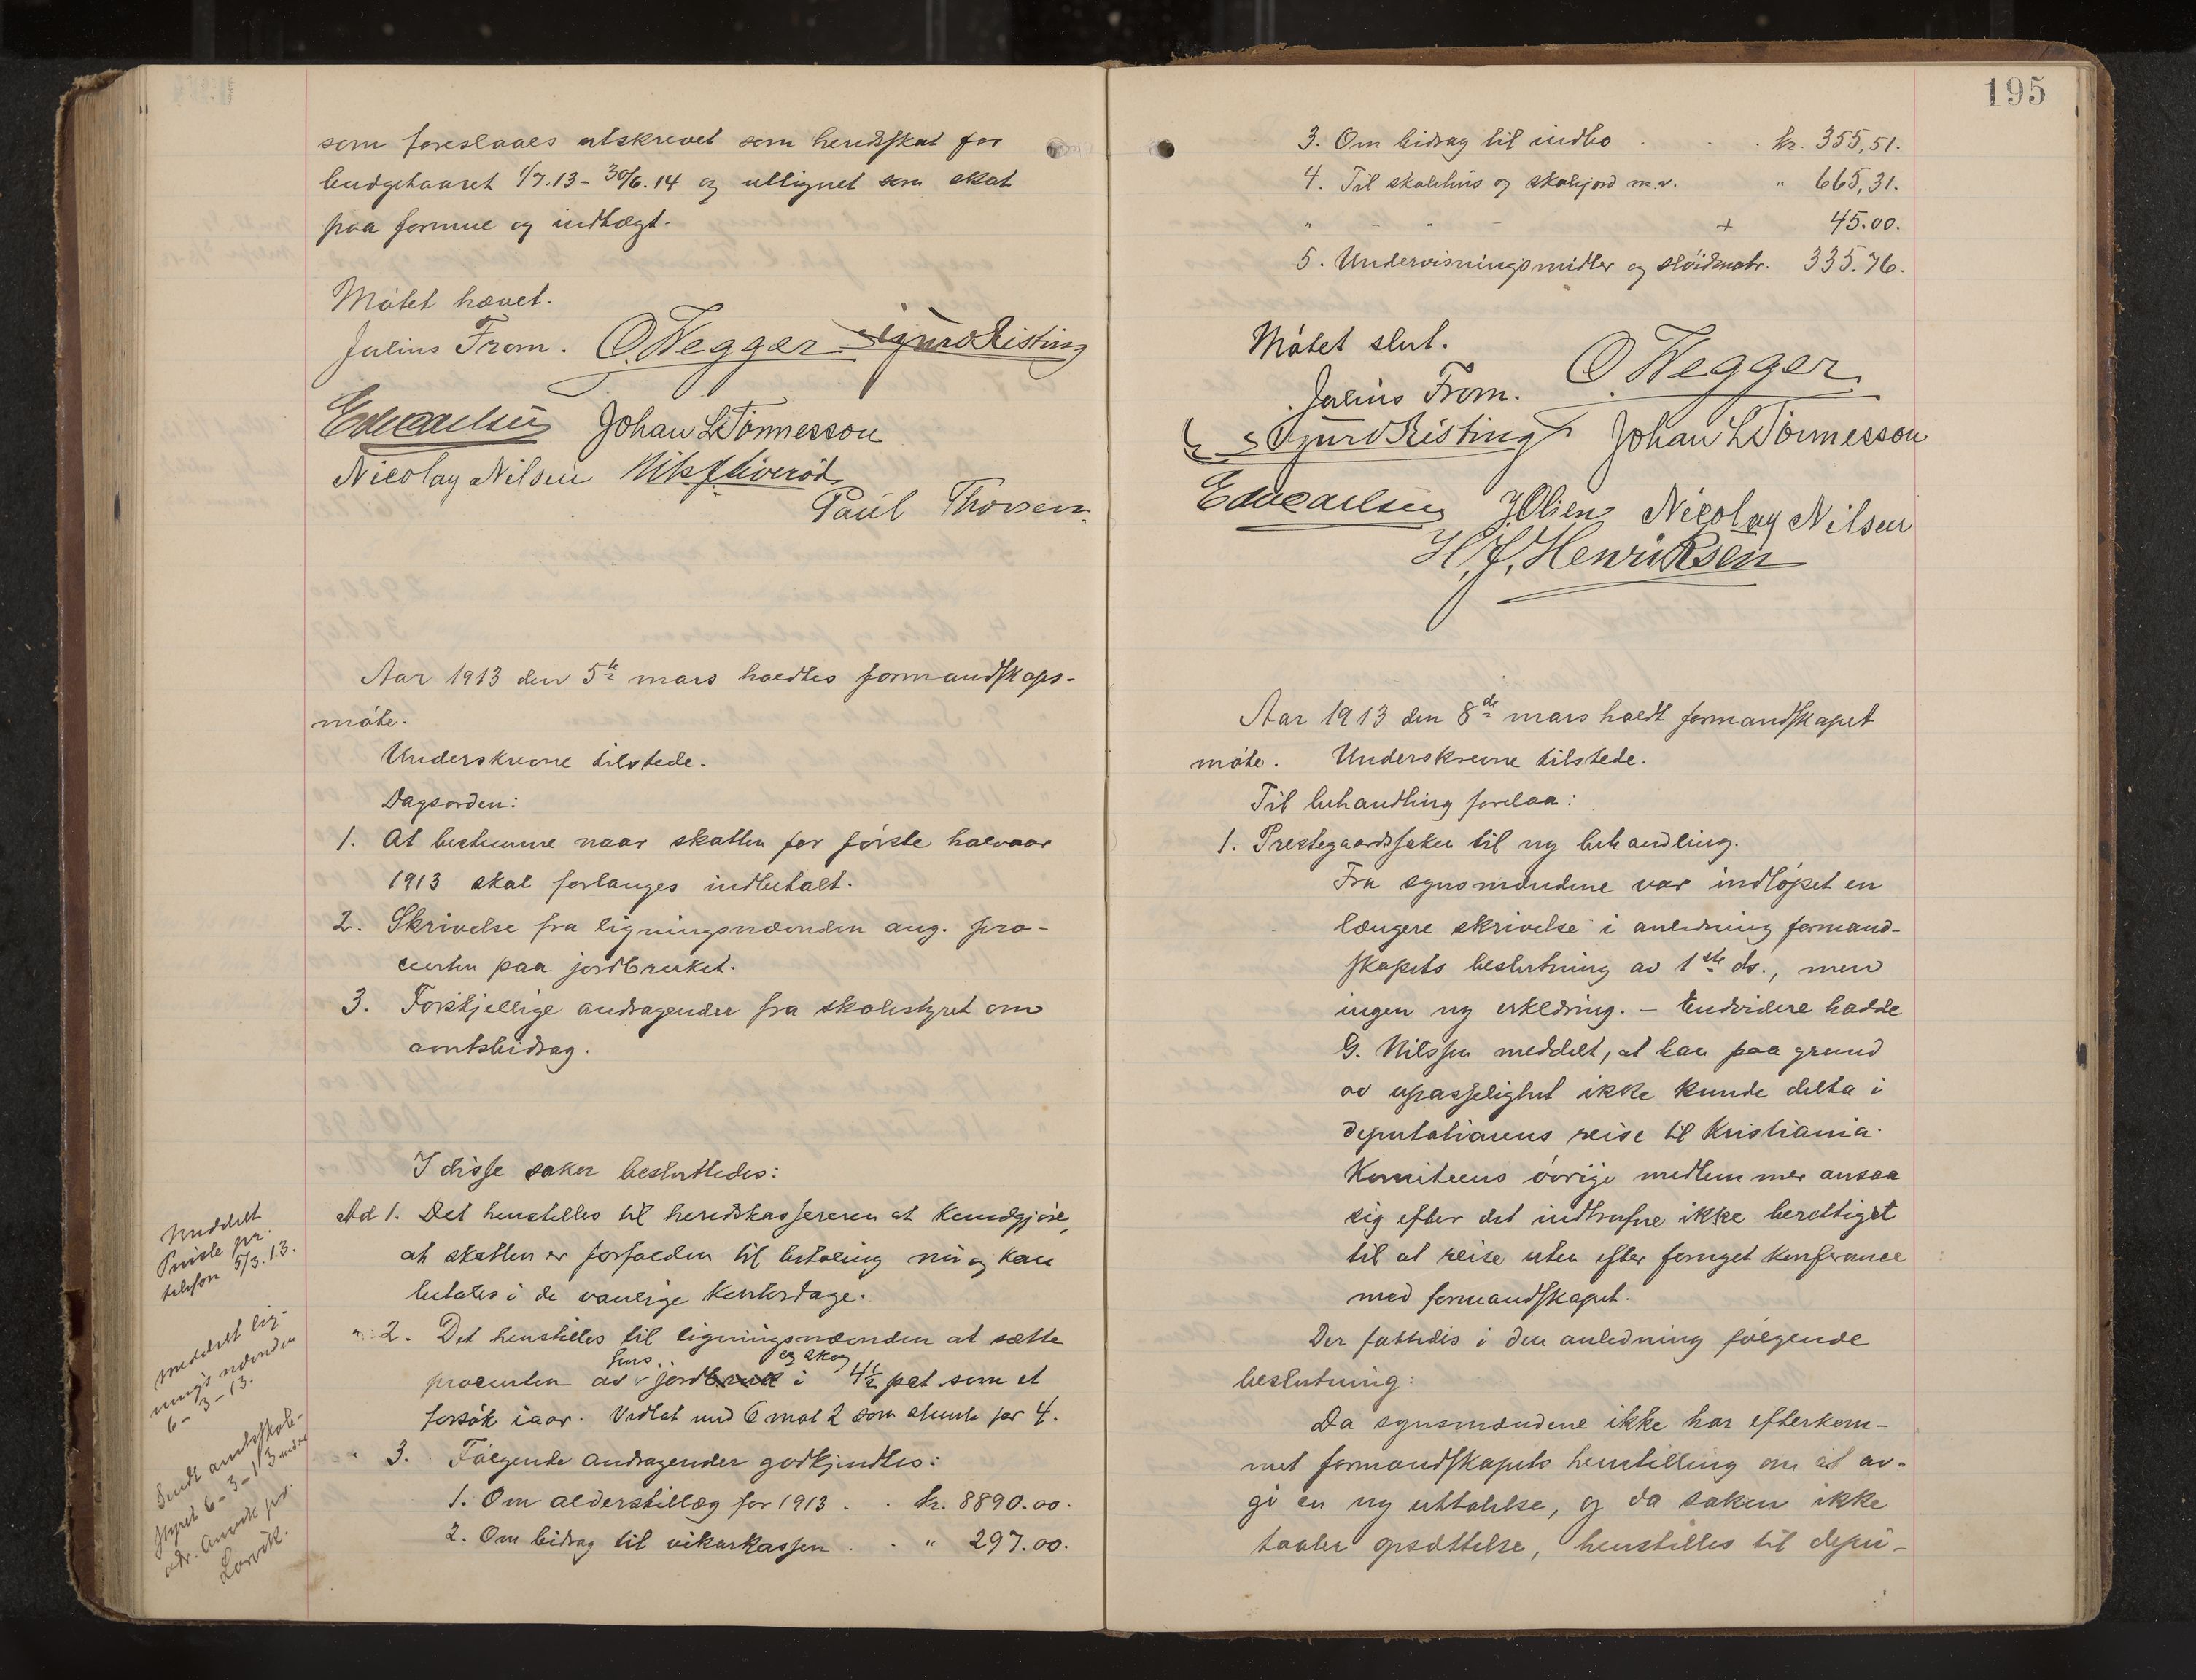 som foreslaaes utskrevet som herredsskat for
budgetaaret 1/7.13 - 30/6.14 og utlignet som skat
paa formue og indtægt.
Møtet hævet.
Julius From. O. Wegger Sigurd Risting
Edv Carlsen Johan L Tønnesson
Nicolay Nilsen Nils Liverød
Paul Thorsen.
Aar 1913 den 5te mars holdtes formandskaps-
møte.
Underskrevne tilstede.
Dagsorden:
1. At bestemme naar skatten for første halvaar
1913 skal forlanges indbetalt.
2. Skrivelse fra ligningsnævnden ang. pro-
centen paa jordbruket.
3. Forskjellige andragender fra skolestyret om
amtsbidrag.
I disse saker besluttedes:
Ad 1. Det henstilles til herredskassereren at kundgjøre,
at skatten er forfalden til betaling nu og kan
betales i de vanlige kontordage.
" 2. Det henstilles til ligningsnævnden at sætte
og skog
procenten av jordbruk i 4½ pct. som et
forsøk iaar. Vedtat med 6 mot 2 som stemte for 4.
" 3. Følgende andragender godkjendtes:
1. Om alderstillæg for 1913 . . kr. 8890.00.
2. Om bidrag til vikarkassen . . " 297.00.
Meddelt
pr.
telefon 5/3.13.
Meddelt lig-
nings nævnden
6-3-13.
Sendt amtsskole-
styret 6-3-13
adr. pr.
Larvik.
195
3. Om bidrag til indbo . . . kr. 355,51.
4. Til skolehus og skolejord m.v. " 665,31.
" - " - + 45.00.
5. Undervisningsmidler og sløidmatr. 335.76.
Møtet slut.
Julius From. O. Wegger
Sigurd Risting Johan L Tønnesson
Edv Carlsen J Olsen Nicolay Nilsen
H. J. Henriksen
Aar 1913 den 8de mars holdt formandskapet
møte. Underskrevne tilstede.
Til behandling forelaa:
1. Prestegaardssaken til ny behandling.
Fra synsmændene var indløpet en
længere skrivelse i anledning formand-
skapets beslutning av 1ste ds., men
ingen ny erklæring. - Endvidere hadde
G. Nilssen meddelt, at han paa grund
av upasselighet ikke kunde delta i
deputationens reise til Kristiania.
Komiteens øvrige medlemmer ansaa
sig efter det indtrufne ikke berettiget
til at reise uten efter fornyet konferance
med formandskapet.
Der fattedes i den anledning følgende
beslutning:
Da synsmændene ikke har efterkom-
met formandskapets henstilling om at av-
gi en ny uttalelse, og da saken ikke
taaler opsættelse, henstilles til depu-